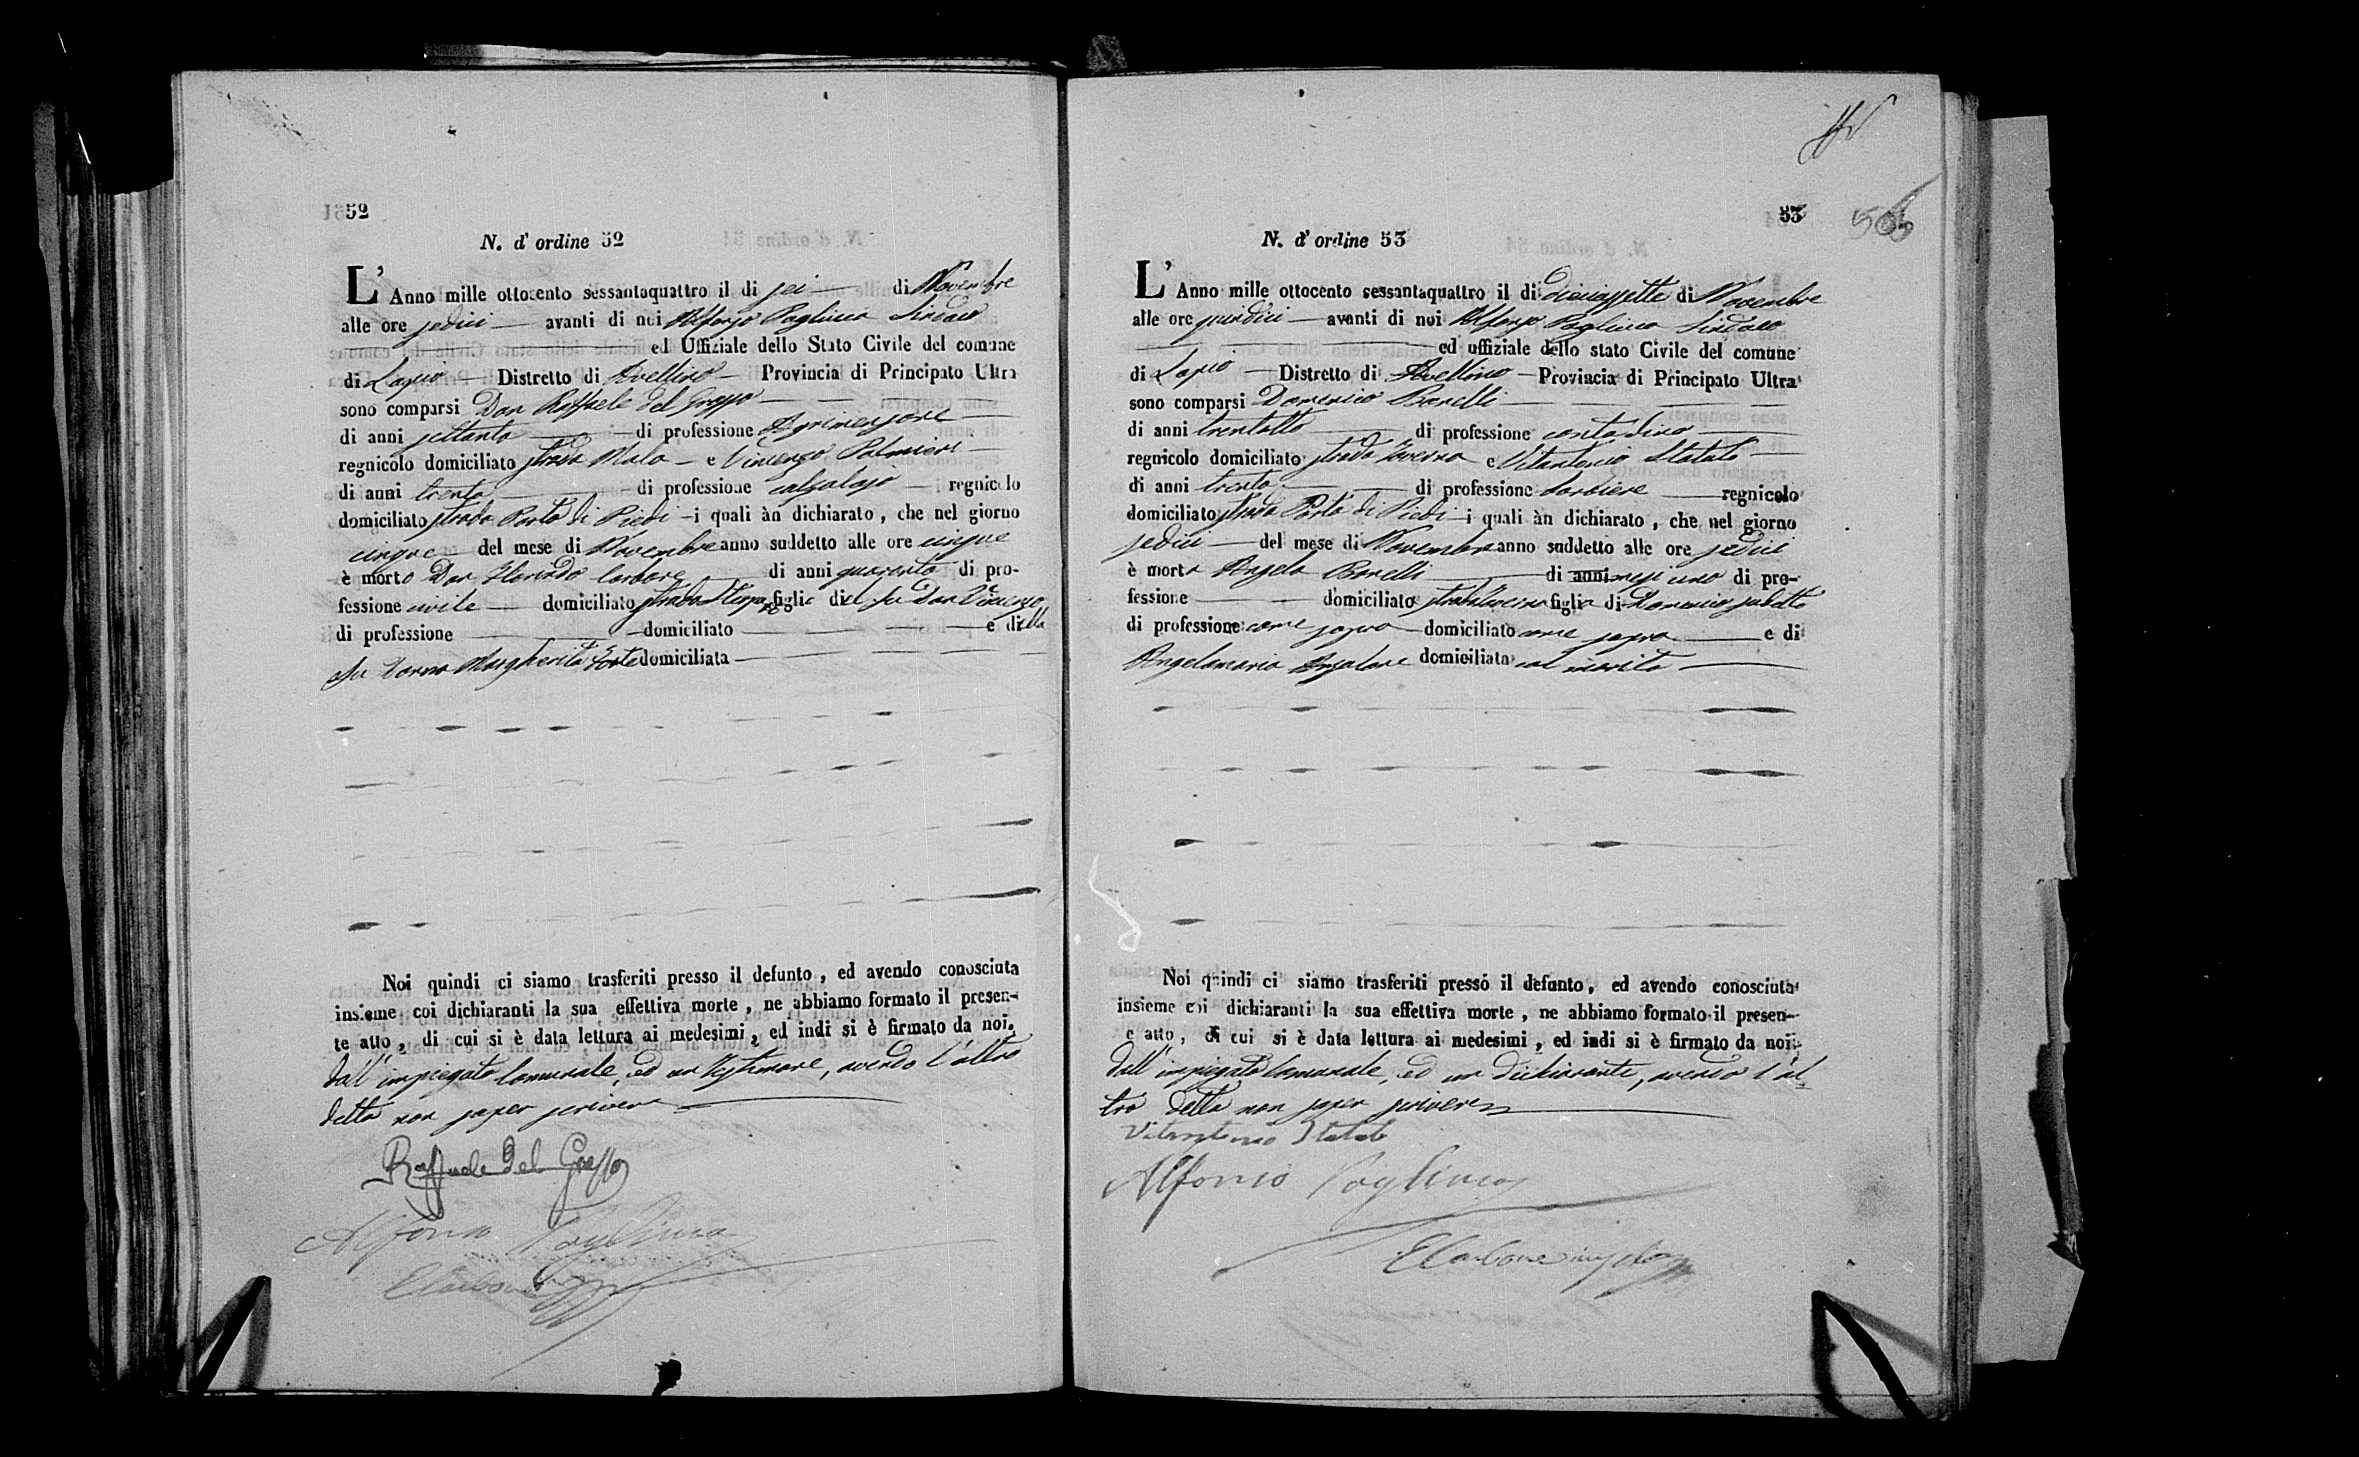 52
N. d' ordine 52
L' Anno mille ottocento sessantaquattro il di sei di Novembre
alle ore sedici avanti di noi Alfonso Pagliuca Sindaco
ed Uffiziale dello Stato Civile del comune
di Lapio Distretto di Avellino Provincia di Principato Ultra
sono comparsi Don Raffaele del Grosso
di anni settanta di professione Agrimensore
regnicolo domiciliato strada Mala e Vincenzo Palmieri
di anni trenta di professione calzolajo regnicolo
domiciliato strada Porta di Piedi i quali àn dichiarato, che nel giorno
cinque del mese di Novembre anno suddetto alle ore cinque
è morto Don Florindo Carbone di anni quaranta di pro-
fessione civile domiciliato strada figlio del fu Don Vincenzo
di professione domiciliato e della
fu Donna Margherita Forte domiciliata
Noi quindi ci siamo trasferiti presso il defunto, ed avendo conosciuta
insieme coi dichiaranti la sua effettiva morte, ne abbiamo formato il presen-
te atto, di cui si è data lettura ai medesimi, ed indi si è firmato da noi,
dall'impiegato Comunale, ed un Testimone, avendo l'altro
detto non saper scrivere
Raffaele Del Grosso
Alfonso Pagliuca
ECarbone
53
506
N. d' ordine 53
L' Anno mille ottocento sessantaquattro il di diciassette di Novembre
alle ore quindici avanti di noi Alfonso Pagliuca Sindaco
ed uffiziale dello stato Civile del comune
di Lapio Distretto di Avellino Provincia di Principato Ultra
sono comparsi Domenico Bonelli
di anni trentotto di professione contadino
regnicolo domiciliato strada Taverna e Vitantonio Statuto
di anni trenta di professione barbiere regnicolo
domiciliato strada Porta di Piedi i quali àn dichiarato, che nel giorno
sedici del mese di Novembre anno suddetto alle ore sedici
è morta Angela Bonelli di anni mesi uno di pro-
fessione domiciliato strada Taverna figlia di Domenico sudetto
di professione come sopra domiciliato come sopra e di
Angelamaria Anzalone domiciliata col marito
Noi quindi ci siamo trasferiti presso il defunto, ed avendo conosciuta
insieme coi dichiaranti la sua effettiva morte, ne abbiamo formato il presen-
e atto, di cui si è data lettura ai medesimi, ed indi si è firmato da noi,
dall'impiegato Comunale, ed un dichiarante, avendo l'al-
tro detto non saper scrivere
Vitantonio Statuto
Alfonso Pagliuca
ECarbone